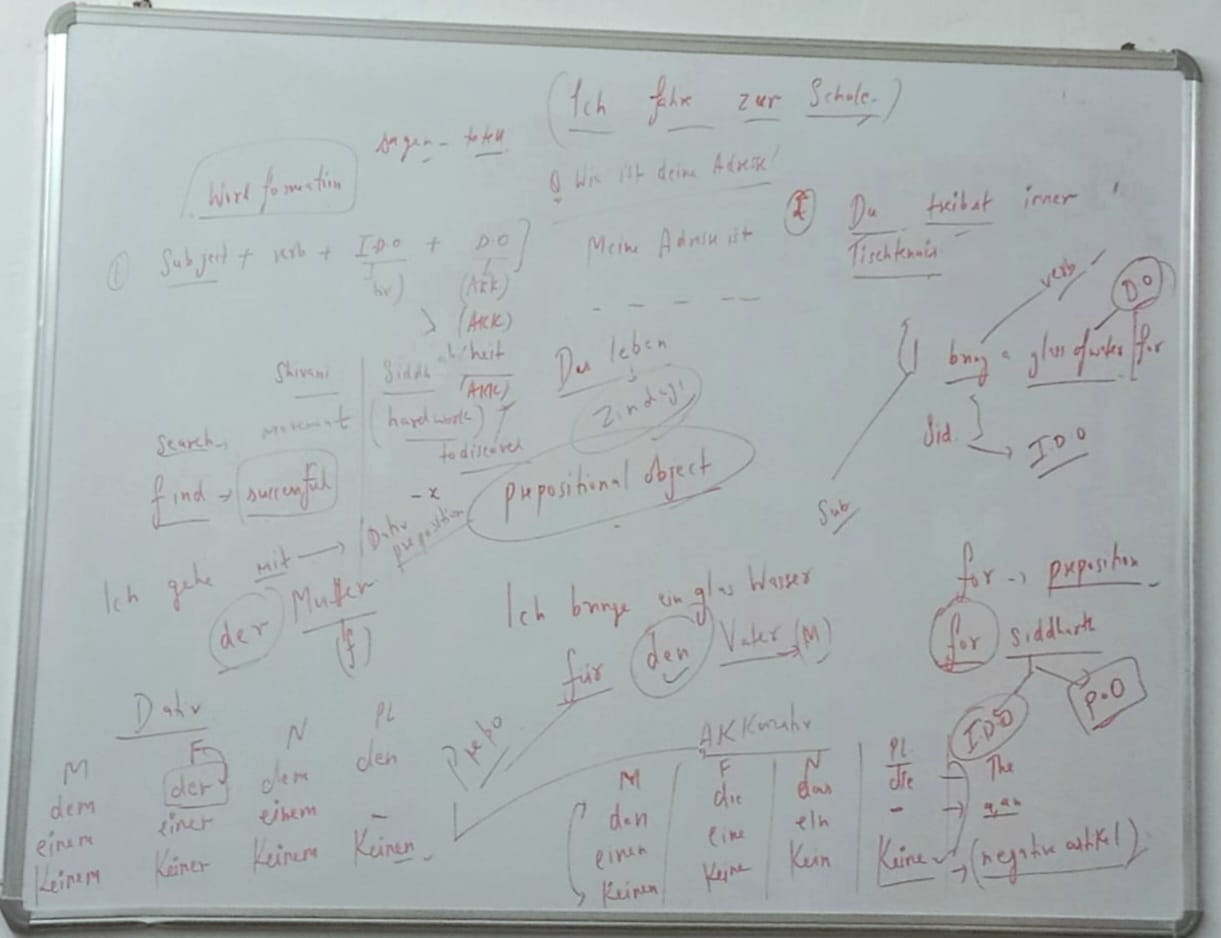 (Ich fahre zur Schule.)
sagen - to tell
Word formation
Q Wie ist deine Adresse?
① Subject + verb + I.D.O + D.O]
(Akk)
(AKK)
Meine Adresse ist
- - - - -
② Du treibst immer
Tischtennis
verb
D.O
bring a glass of water for
Sid.
→ I.D.O
Sub
Shivani
Siddh
(AKK)
Das leben
Zindagi
search
movement
(hard work)
to discover
find → successful
- x
prepositional object
Ich gehe mit → Dativ preposition
der Mutter
(f)
Ich bringe ein glas Wasser
für den Vater (M)
for → preposition
for Siddharth
I.D.O
P.O
Prepo
Dativ
M F N PL
dem der dem den
einem einer einem -
Keinem Keiner Keinem Keinen
AKKusativ
M F N PL
den die das die → The
einen eine ein - → a, an
Keinen Keine Kein Keine → (negative artikel)